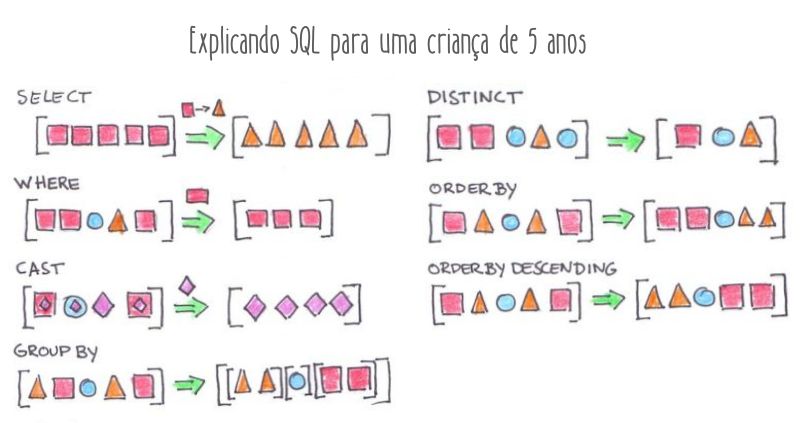 Explicando SQL para uma criança de 5 anos
SELECT
WHERE
CAST
GROUP BY
DISTINCT
ORDER BY
ORDER BY DESCENDING